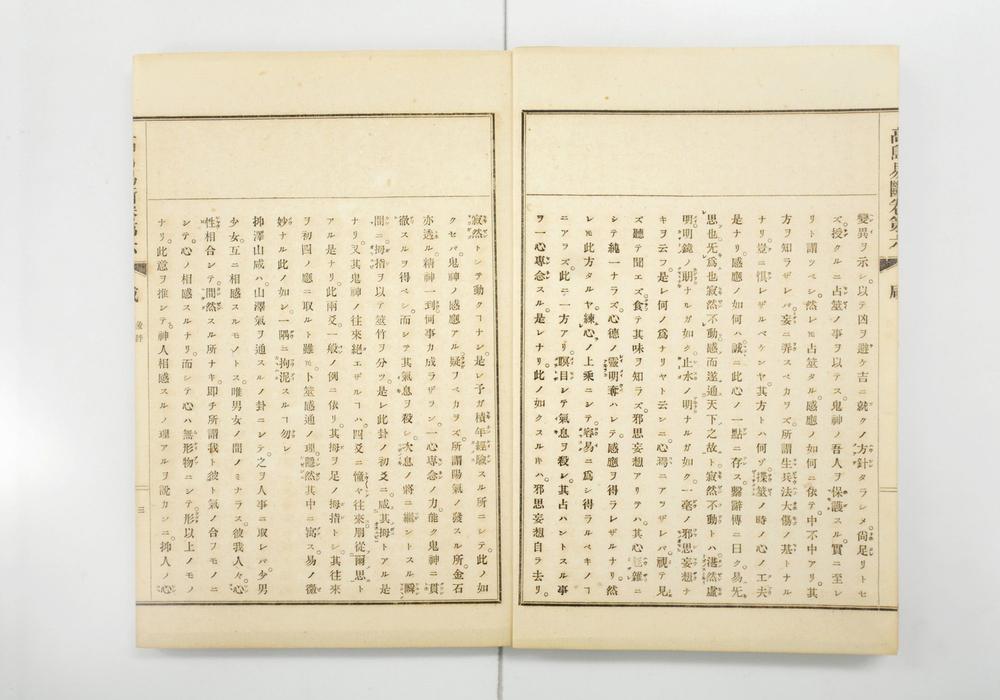 高島易斷卷第六
變異ヲ示シ以テ凶ヲ避ケ吉ニ就クノ方針タラシメ尙足リトセ
ズ授クルニ占筮ノ事ヲ以テス鬼神ノ吾人ヲ保護スル實ニ至レ
リト謂ツベシ然レ𪜈占筮タル感應ノ如何ニ依テ中不中アリ其
方ヲ知ラザレバ妄ニ弄スベカラズ所謂生兵法大傷ノ基トナル
ナリ豈ニ愼レザルベケンヤ其方トハ何ゾ揲筮ノ時ノ心ノ工夫
是ナリ感應ノ如何ハ誠ニ此心ノ一點ニ存ス繫辭傳ニ曰ク易旡
思也旡爲也寂然不動感而遂通天下之故ト寂然不動トハ湛然虛
明明鏡ノ明ナルガ如ク止水ノ明ナルガ如ク一毫ノ邪思妄想ナ
キヲ云フ是レ何ノ爲ナリヤト云シニ心焉ニアラザレバ視テ見
ズ聽テ聞エズ食テ其味ヲ知ラズ邪思妄想アリテハ其心雜ニ
シテ純一ナラズ心德ノ靈明奪ハレテ感應ヲ得ラレザルナリ然
レ𪜈此方タルヤ練心ノ上乘ニシテ容易ニ爲シ得ラルベキノヿ
ニアラズ此ニ一方アリ瞑目シテ氣息ヲ殺シ其占ハントスル事
ヲ一心專念スル是レナリ此ノ如クスルキハ邪思妄想自ラ去リ
寂然トシテ動クヿナシ是レ予ガ積年經驗スル所ニシテ此ノ如
クセバ鬼神ノ感應アル疑フベカラズ所謂陽氣ノ發スル所金石
亦透ル精神一到何事カ成ラザラン一心專念ノ力能ク鬼神ニ貫
徹スルヲ得ベシ而シテ其氣息ヲ殺シ次息ノ將ニ繼ントスル瞬
間ニ拇指ヲ以テ筮竹ヲ分ツ是レ此卦ノ初爻ニ咸其拇トアル是
ナリ又其鬼神ノ往來絕エザルヿハ四爻ニ憧々往來朋從爾思ト
アル是ナリ此兩爻一般ノ例ニ依リ其拇ヲ足ノ拇指トシ其往來
ヲ初四ノ應ニ取ルト雖𪜈卜筮感通ノ理隱然其中ニ寓ス易ノ微
妙ナル此ノ如シ一隅ニ拘泥スルヿ勿レ
抑澤山咸ハ山澤氣ヲ通スルノ卦ニシテ之ヲ人事ニ取レバ少男
少女互ニ相感スルモノトス唯男女ノ間ノミナラス彼我人々心
性相合シテ間然スル所ナキ即チ所謂我ト彼ト氣ノ合フモノニ
シテ心ノ相感スルナリ而シテ心ハ無形物ニシテ形以上ノモノ
ナリ此意ヲ推シテ神人相感スルノ理アルヲ說カンニ抑人ノ心
咸
三